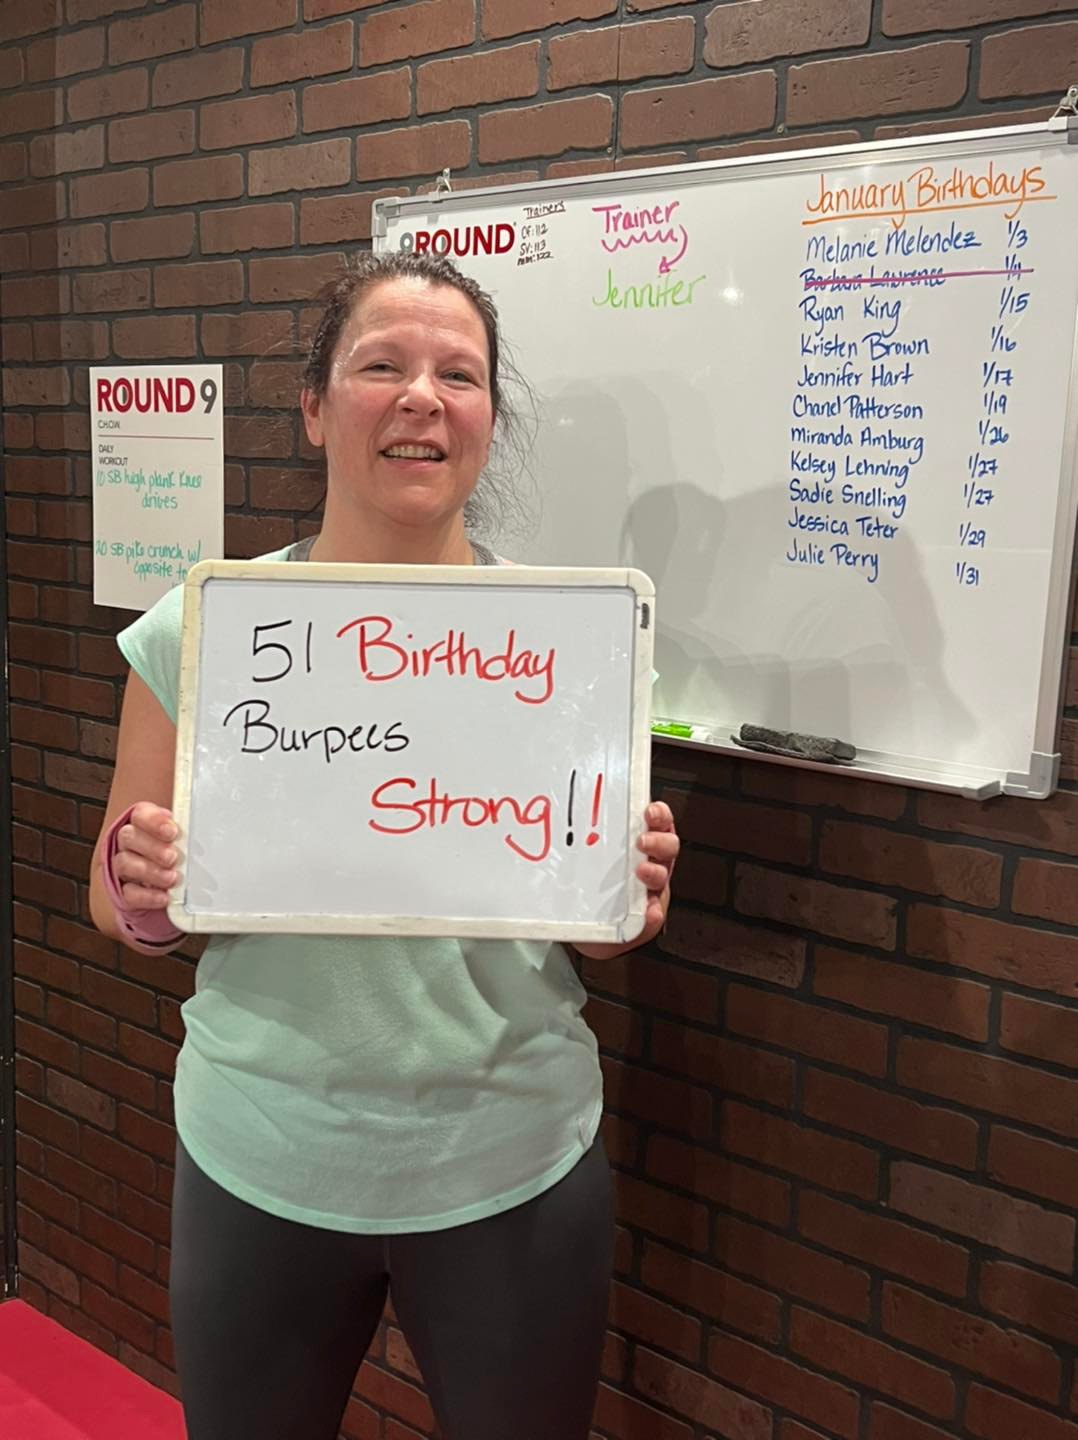 51 Birthday
Burpees
Strong!!
9ROUND
Trainers
CF: 112
SV: 113
mm: 122
Trainer
Jennifer
January Birthdays
Melanie Melendez 1/3
Barbara Lawrence 1/11
Ryan King 1/15
Kristen Brown 1/16
Jennifer Hart 1/17
Chanel Patterson 1/19
Miranda Amburg 1/26
Kelsey Lehning 1/27
Sadie Snelling 1/27
Jessica Teter 1/29
Julie Perry 1/31
ROUND 9
C.H.O.W.
DAILY
WORKOUT
10 SB high plank knee
drives
20 SB pike crunch w/
opposite